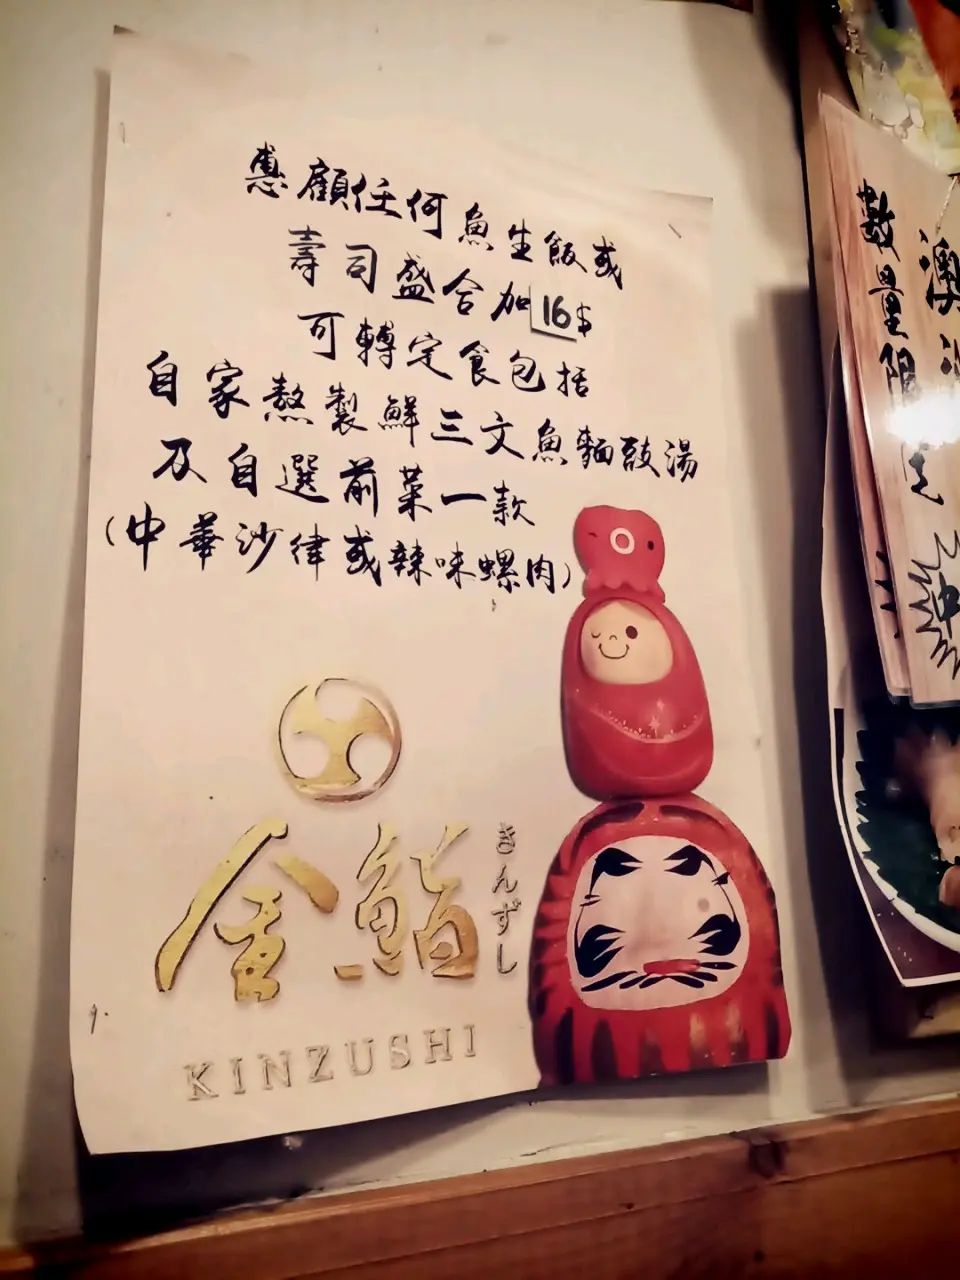 惠顧任何魚生飯或
壽司盛合加16$
可轉定食包括
自家熬製鮮三文魚麵豉湯
及自選前菜一款
(中華沙律或辣味螺肉)
金鮨
きんずし
KINZUSHI
數量限定
澳